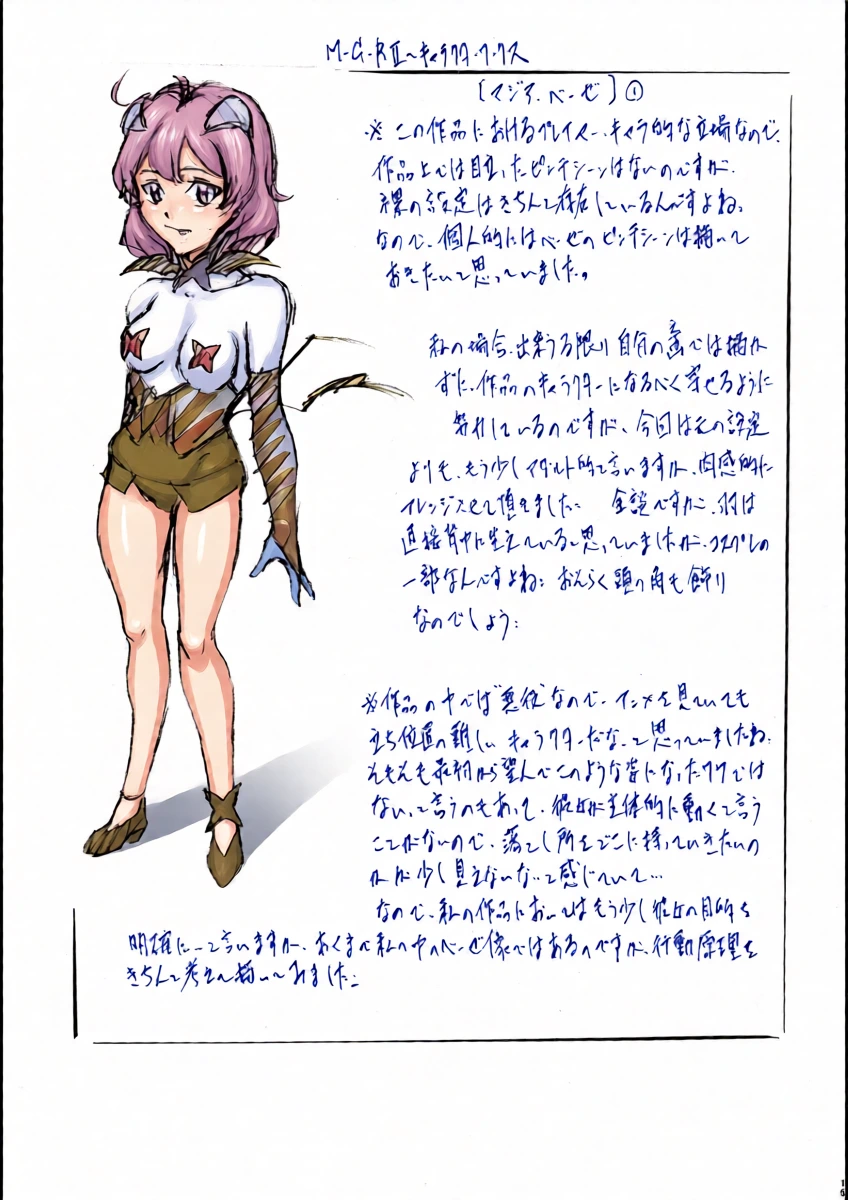 M-G-RⅡ〜キャラクターワークス
[マジア・ベーゼ]①
※この作品におけるプレイヤーキャラ的な立場なので、
作品上では目立ったピンチシーンはないのですが、
裸の設定はきちんと存在しているんですよね。
なので、個人的にはベーゼのピンチシーンは描いて
おきたいと思っていました。
私の場合、出来うる限り自分の意では描か
ずに、作品のキャラクターになるべく寄せるように
努力しているのですが、今回は元の設定
よりも、もう少しアダルト的と言いますか、肉感的に
アレンジさせて頂きました。 余談ですが、羽は
直接背中に生えていると思っていましたが、コスプレの
一部なんですよね。おそらく頭の角も飾り
なのでしょう。
※作品の中では"悪役"なので、アニメを見ていても
立ち位置の難しいキャラクターだな…と思っていましたね。
そもそも最初から望んでこのような姿になったワケでは
ない、と言うのもあって、彼女が主体的に動くと言う
ことがないので、落とし所をどこに持っていきたいの
かが少し見えないな…と感じていて…
なので、私の作品においてはもう少し彼女の目的を
明確に…と言いますか、あくまで私の中のベーゼ像ではあるのですが、行動原理を
きちんと考えて描いてみました。